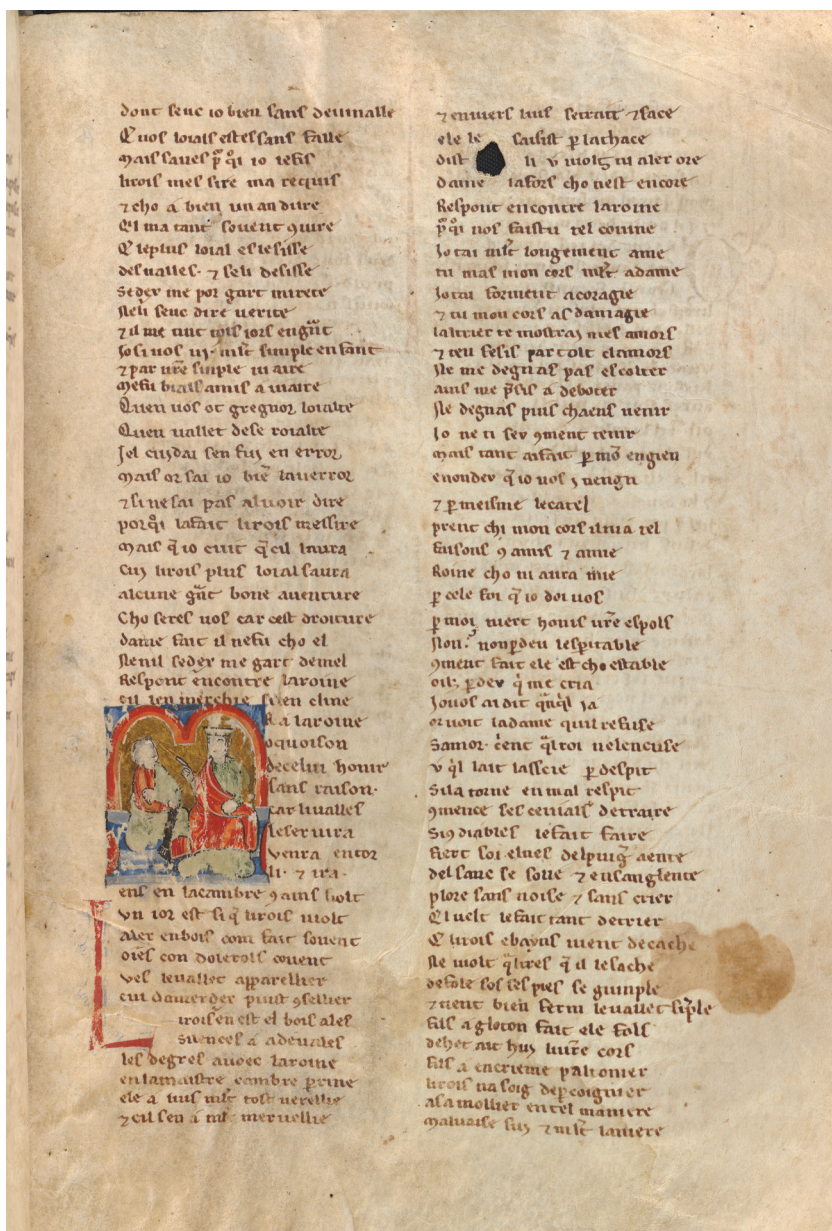 dont seuc io bien sans deuinalle
Q̄ uos loials estes sans falle
Mais saues p̄ qⁱ io le fis
lirois mes sire ma requis
⁊ cho a bien un an dure
Q̄l ma tant souent ꝯiure
Q̄ le plus loial eslesisse
des ualles · ⁊ seli desisse
Se dex me por gart mirete
Neli seuc dire uerite
⁊ il me tint iors
Jo si uos ui· ml̄t simple enfant
⁊ par ur̄e simple uiaire
Quen uos ot gregnor loialte
Quen uallet de se roialte
Jel cuydai sen fuy en error
Mais or sai io biē lauerror
⁊ si ne sai pas al uoir dire
porqⁱ lafait lirois messire
Mais q̄ io cuit q̄ cil laura
Cuy lirois plus loial saura
alcune gr̄t bone auenture
Cho seres uos car cest droiture
dame fait il ne fu cho el
Nenil se dex me gart demel
Respont encontre laroine
cil len merchie si en cline
Ra laroine
oquoison
decelui honir
sans raison·
car liualles
leseruira
Venra encor
li· ⁊ ira·
ens en lacambre ꝯains solt
Vn ior est si q̄ lirois uiolt
aler en bois com fait souent
oies con dolerols couent
Ves leuallet apparellier
cui damerdex puist ꝯsellier
Lirois en est el bois ales
Silences a adeuales
les degres auoec laroine
en lamaistre cambre
ele a luis ml̄t tost uerellie
⁊ cil sen a ml̄t meruellie
⁊ enuiers luis setrait ⁊ sace
ele le saisist p̱ lathace
dist li v uiolg tu aler ore
dame lafors cho nest encore
Respont encontre laroine
p̄qⁱ nos faistu tel couine
Jo tai ml̄t longement ame
tu mas mon cors ml̄t adame
Jo tai forment acoragie
⁊ tu mon cors as damagie
laltrier te mostray mes amors
⁊ ten fesis par tolt clamors
Ne me degnas pas escolter
ains me p̄sis a deboter
Ne degnas puis chaens uenir
Jo ne ti sev ꝯment tenir
Mais tant aifait p̱ mō engien
q̄ io uos uengn
⁊ p̱ meisme le catel
prent chi mon cors
faisons ꝯ amis ⁊ amie
Roine cho ni aura mie
p̱ cele foi q̄ io doi uos
p̱ moi niert honis ur̄e espols
Non? non p̱ deu lespitable
ꝯment fait ele est cho estable
oil· p̱ dex qⁱ me cria
Jo uos ai dit
or uoit ladame quil refuse
Samor·
v qⁱl lait lasscie p̱ despit
Si la torne en mal respit
ꝯmence ses ceuials detraire
Si ꝯ diables le fait faire
fiert soi el nes del puig
del sanc se solle ⁊ ensanglente
plore sans noise ⁊ sans crier
Q̄l uelt le fait tant detrier
Q̄ lirois ebayns uient de cache
Ne uiolt q̄ ltres q̄ il le sache
defole sos ses pies se guimple
⁊ tient bien ferm leuallet
fils a gloton fait ele fols
dehet ait huy liur̄e cors
fils a encrieme paltonier
lirois na soig
asa mollier en tel maniere
Maluaise suy ⁊ ml̄t laniere